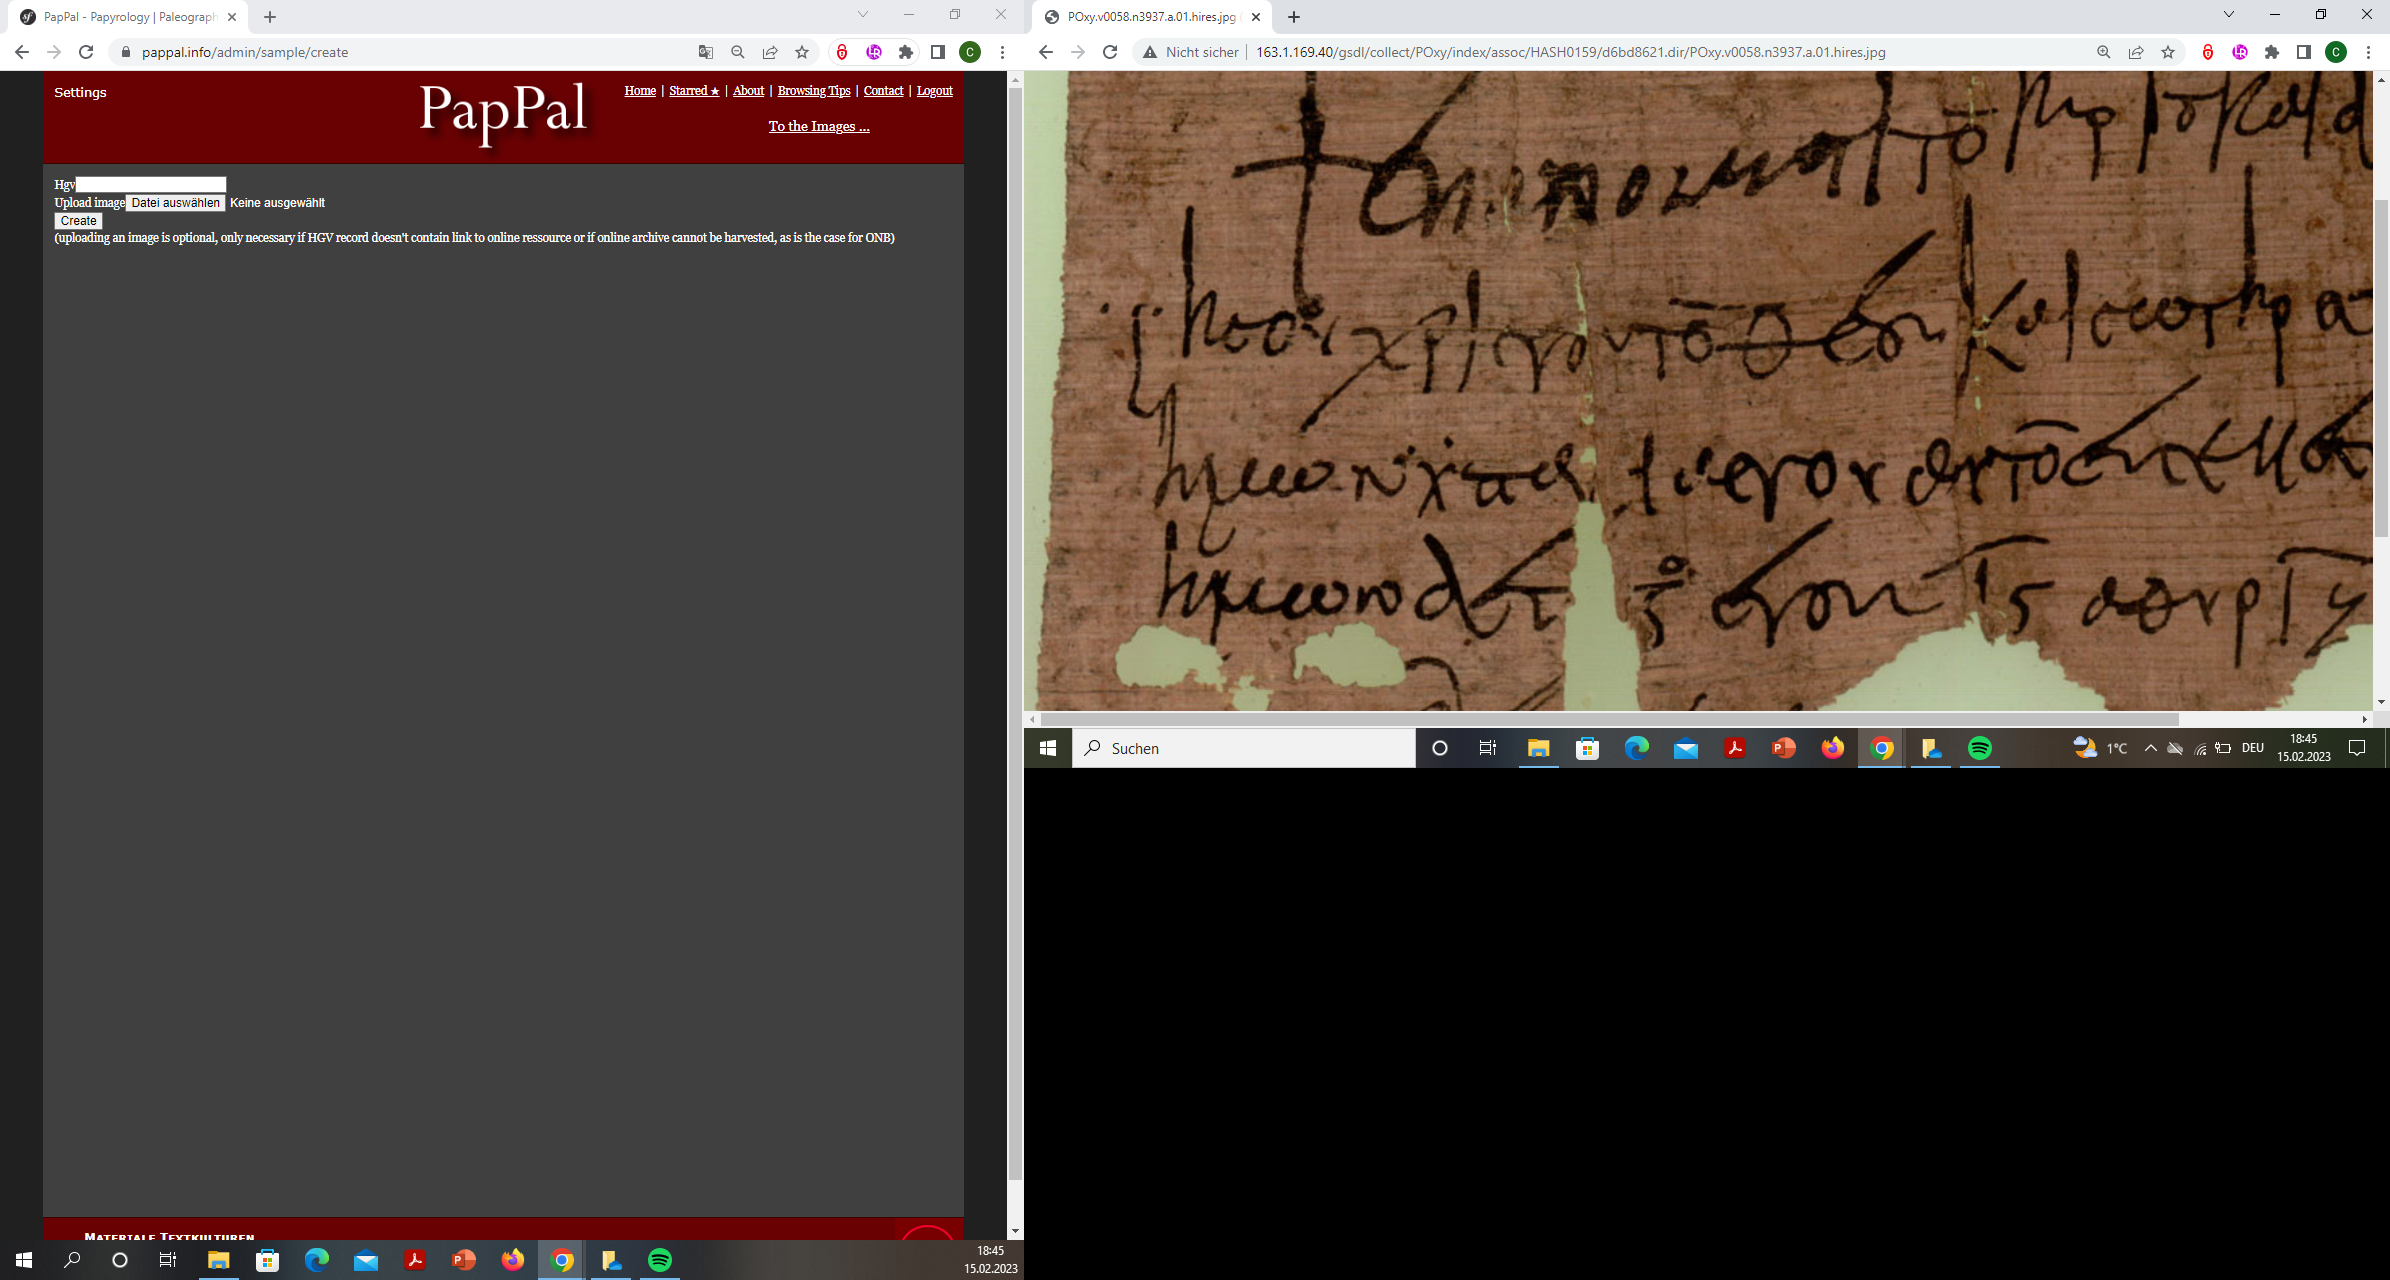 PapPal - Papyrology | Paleograph
pappal.info/admin/sample/create
Settings
PapPal
Home | Starred ★ | About | Browsing Tips | Contact | Logout
To the Images ...
Hgv
Upload image Datei auswählen Keine ausgewählt
Create
(uploading an image is optional, only necessary if HGV record doesn't contain link to online ressource or if online archive cannot be harvested, as is the case for ONB)
MATERIALE TEXTKULTUREN
18:45
15.02.2023
POxy.v0058.n3937.a.01.hires.jpg
Nicht sicher | 163.1.169.40/gsdl/collect/POxy/index/assoc/HASH0159/d6bd8621.dir/POxy.v0058.n3937.a.01.hires.jpg
† εν ονοματι του κυριου και δ
ϊησου χριστου του θεου και σωτηρο
ημων
ημων
Suchen
1°C
DEU
18:45
15.02.2023